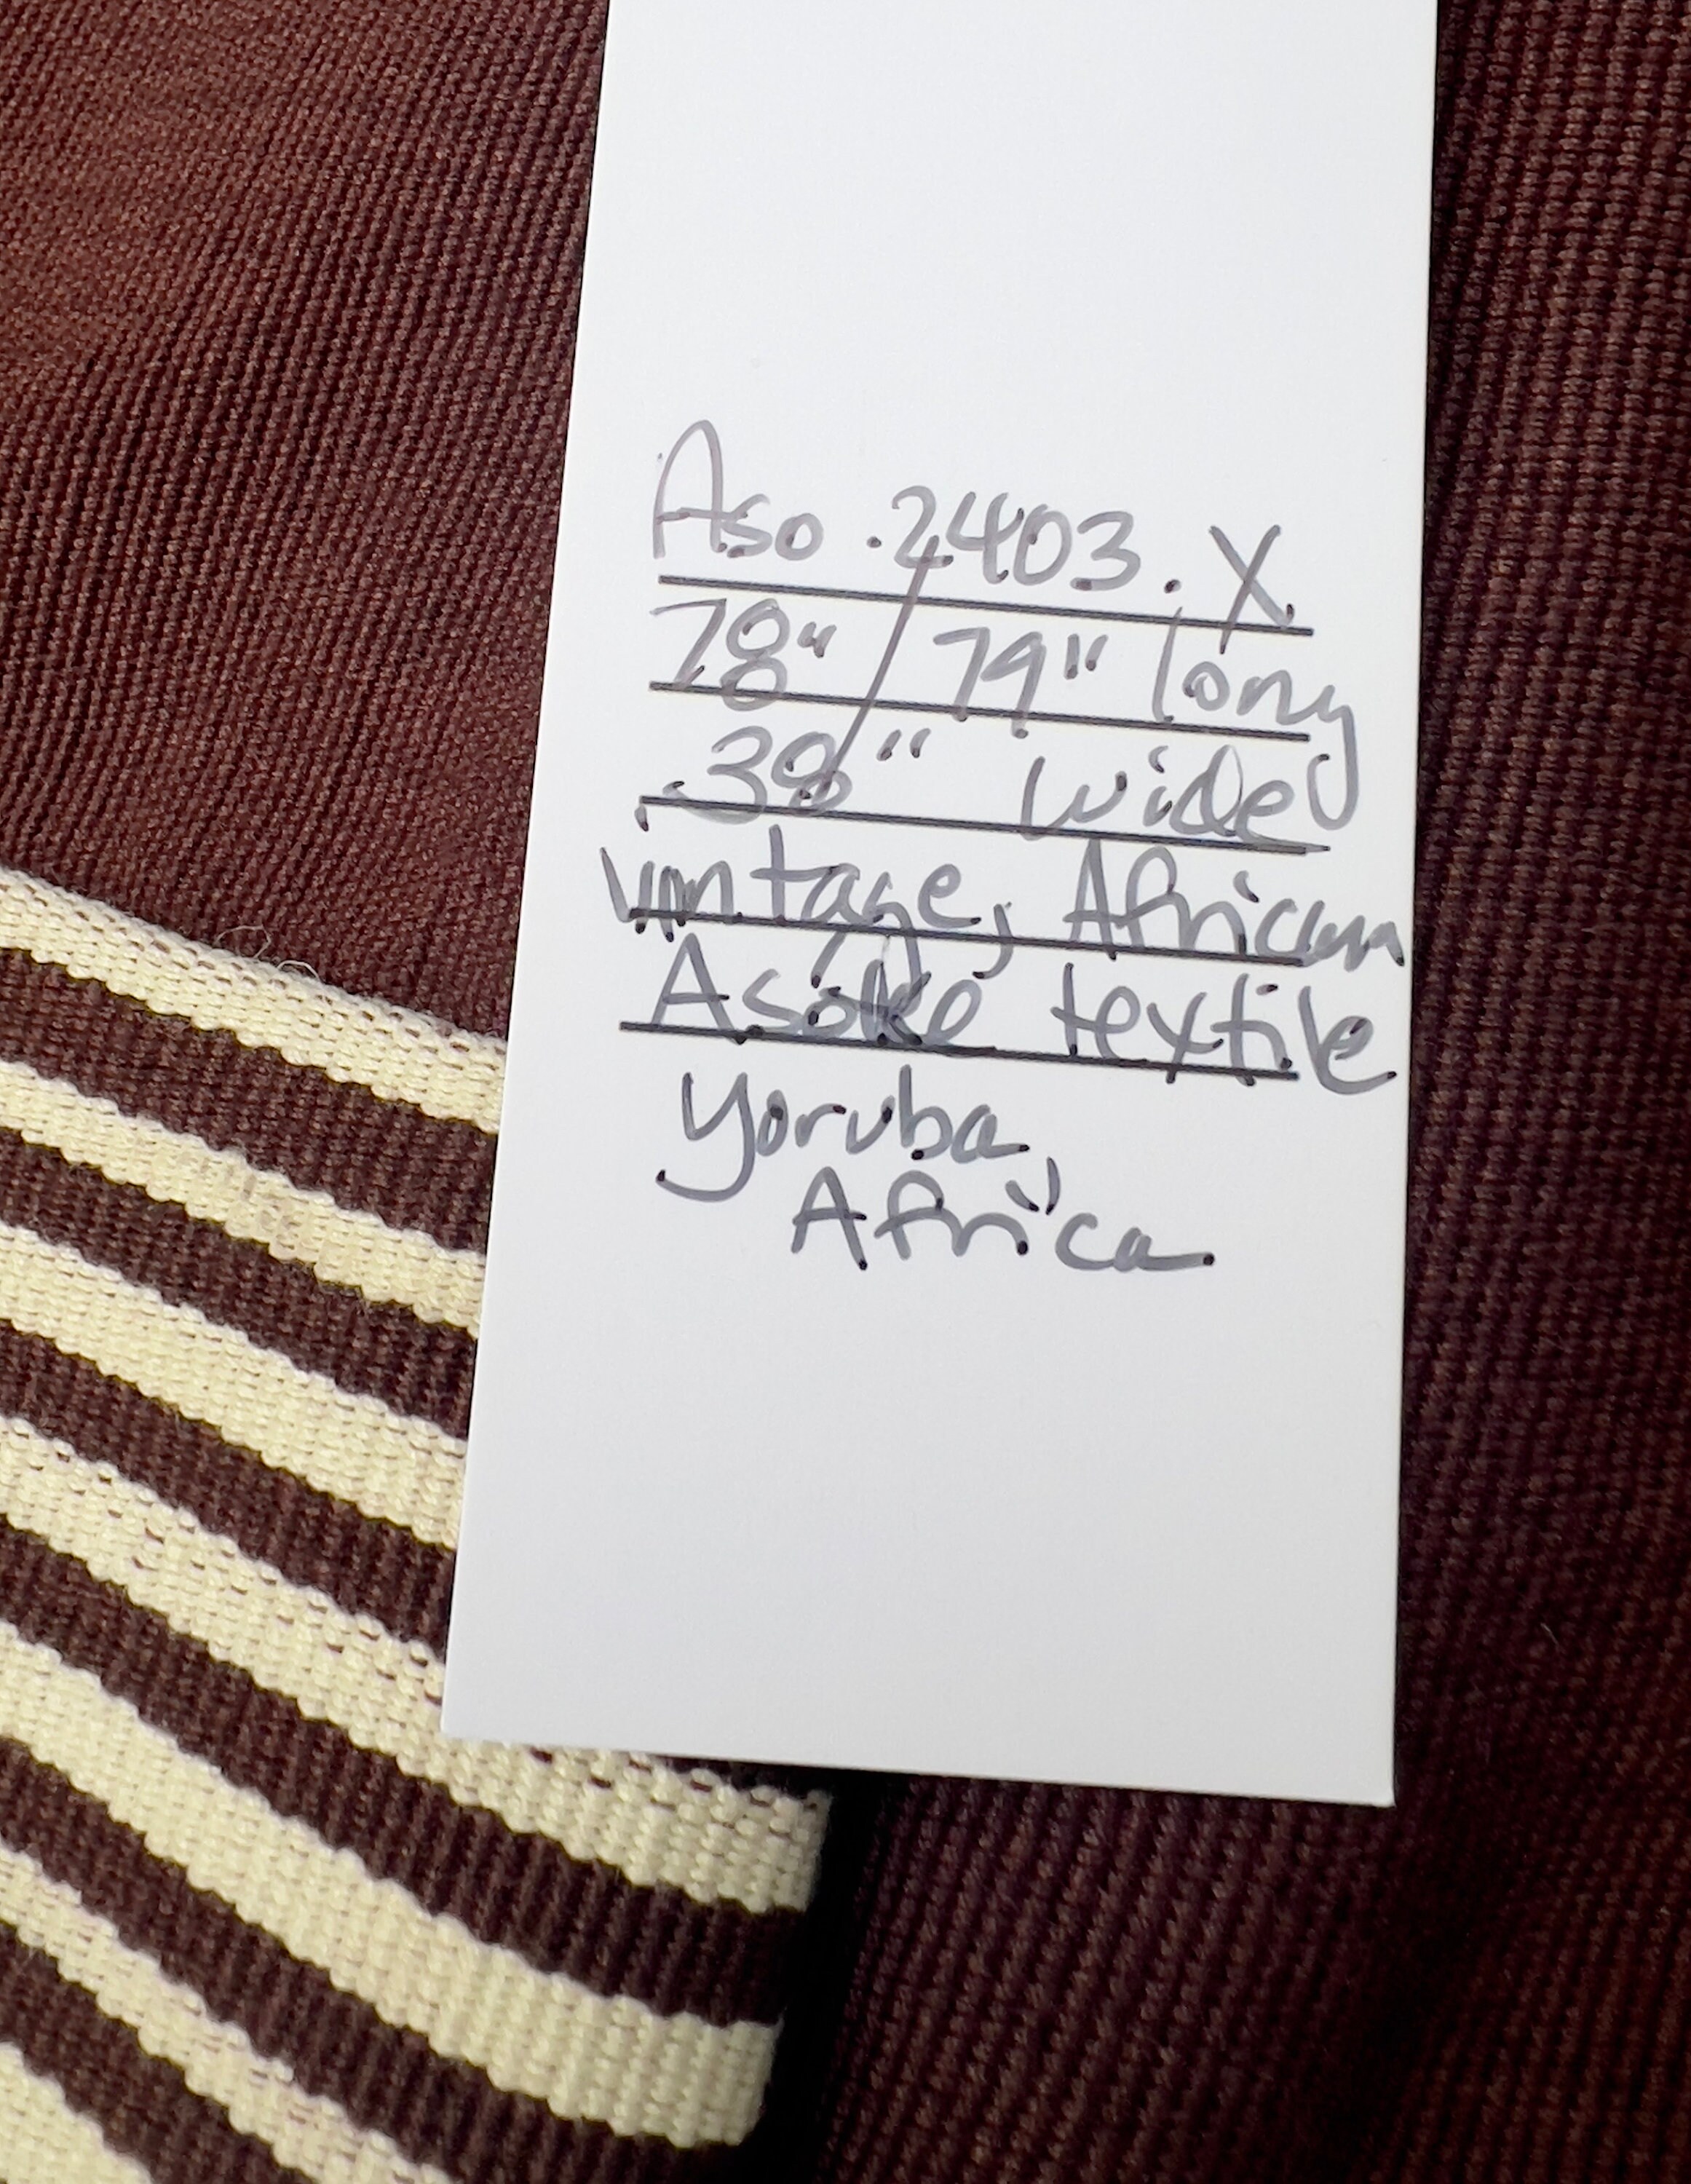 Aso.2403.X
78" / 79" long
38" wide
vintage, African
Asoke textile
Yoruba,
Africa